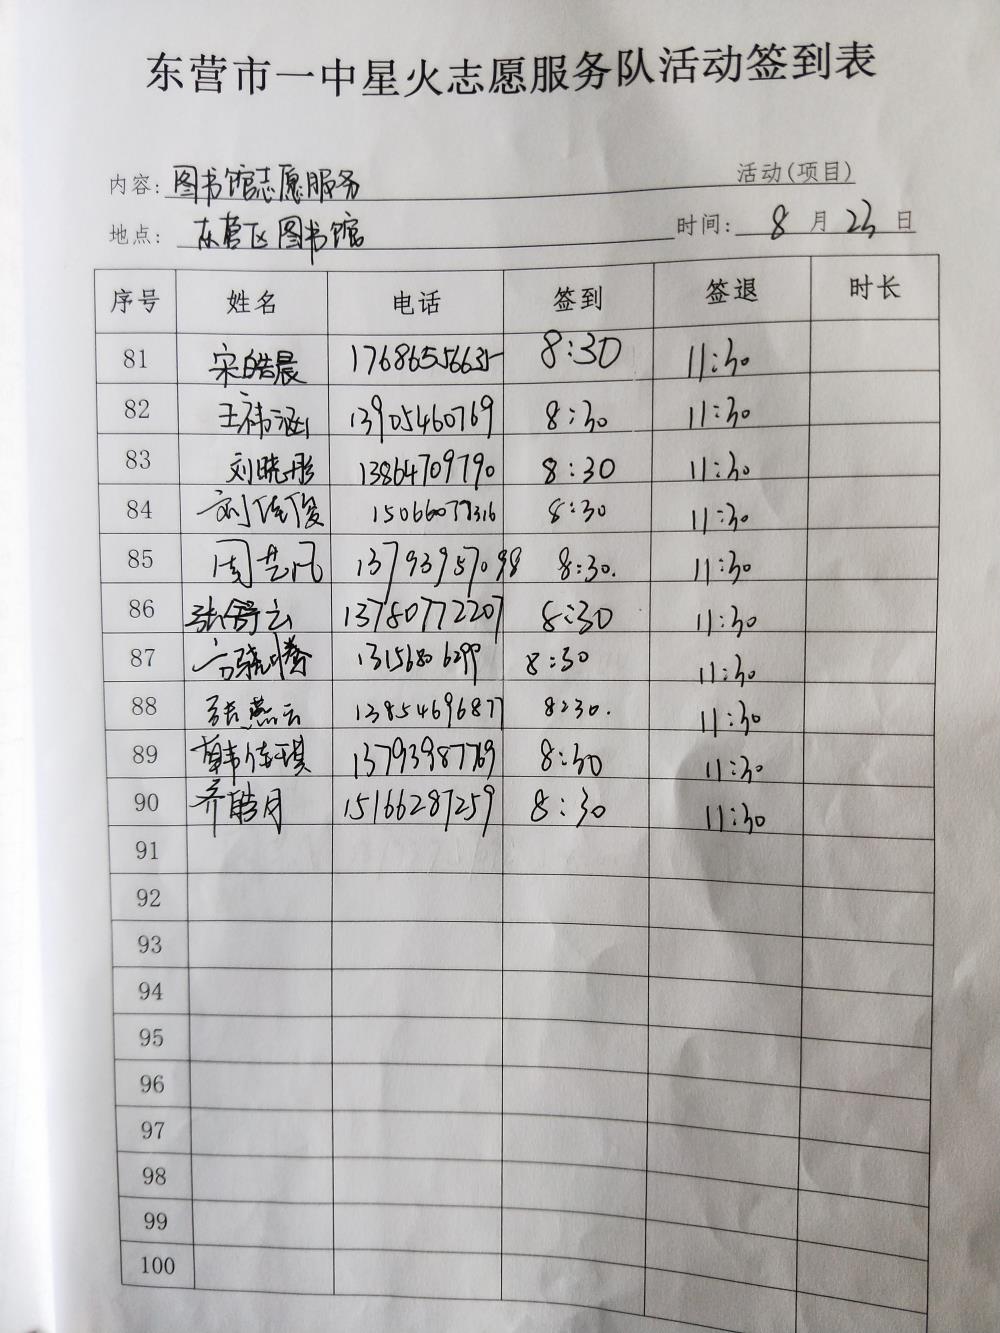 东营市一中星火志愿服务队活动签到表
活动(项目)
内容: 图书馆志愿服务
地点: 东营区图书馆 时间: 8 月 23 日
序号 姓名 电话 签到 签退 时长
81 宋皓晨 17686556635 8:30 11:30
82 王祎涵 13905460769 8:30 11:30
83 刘晓彤 13864709790 8:30 11:30
84 刘佳俊 15066077316 8:30 11:30
85 周艺凡 13793957098 8:30. 11:30
86 张舒云 13780772207 8:30 11:30
87 13156806299 8:30 11:30
88 张燕云 13854696877 8:30. 11:30
89 韩佳琪 13793987769 8:30 11:30
90 齐皓月 15166287259 8:30 11:30
91
92
93
94
95
96
97
98
99
100